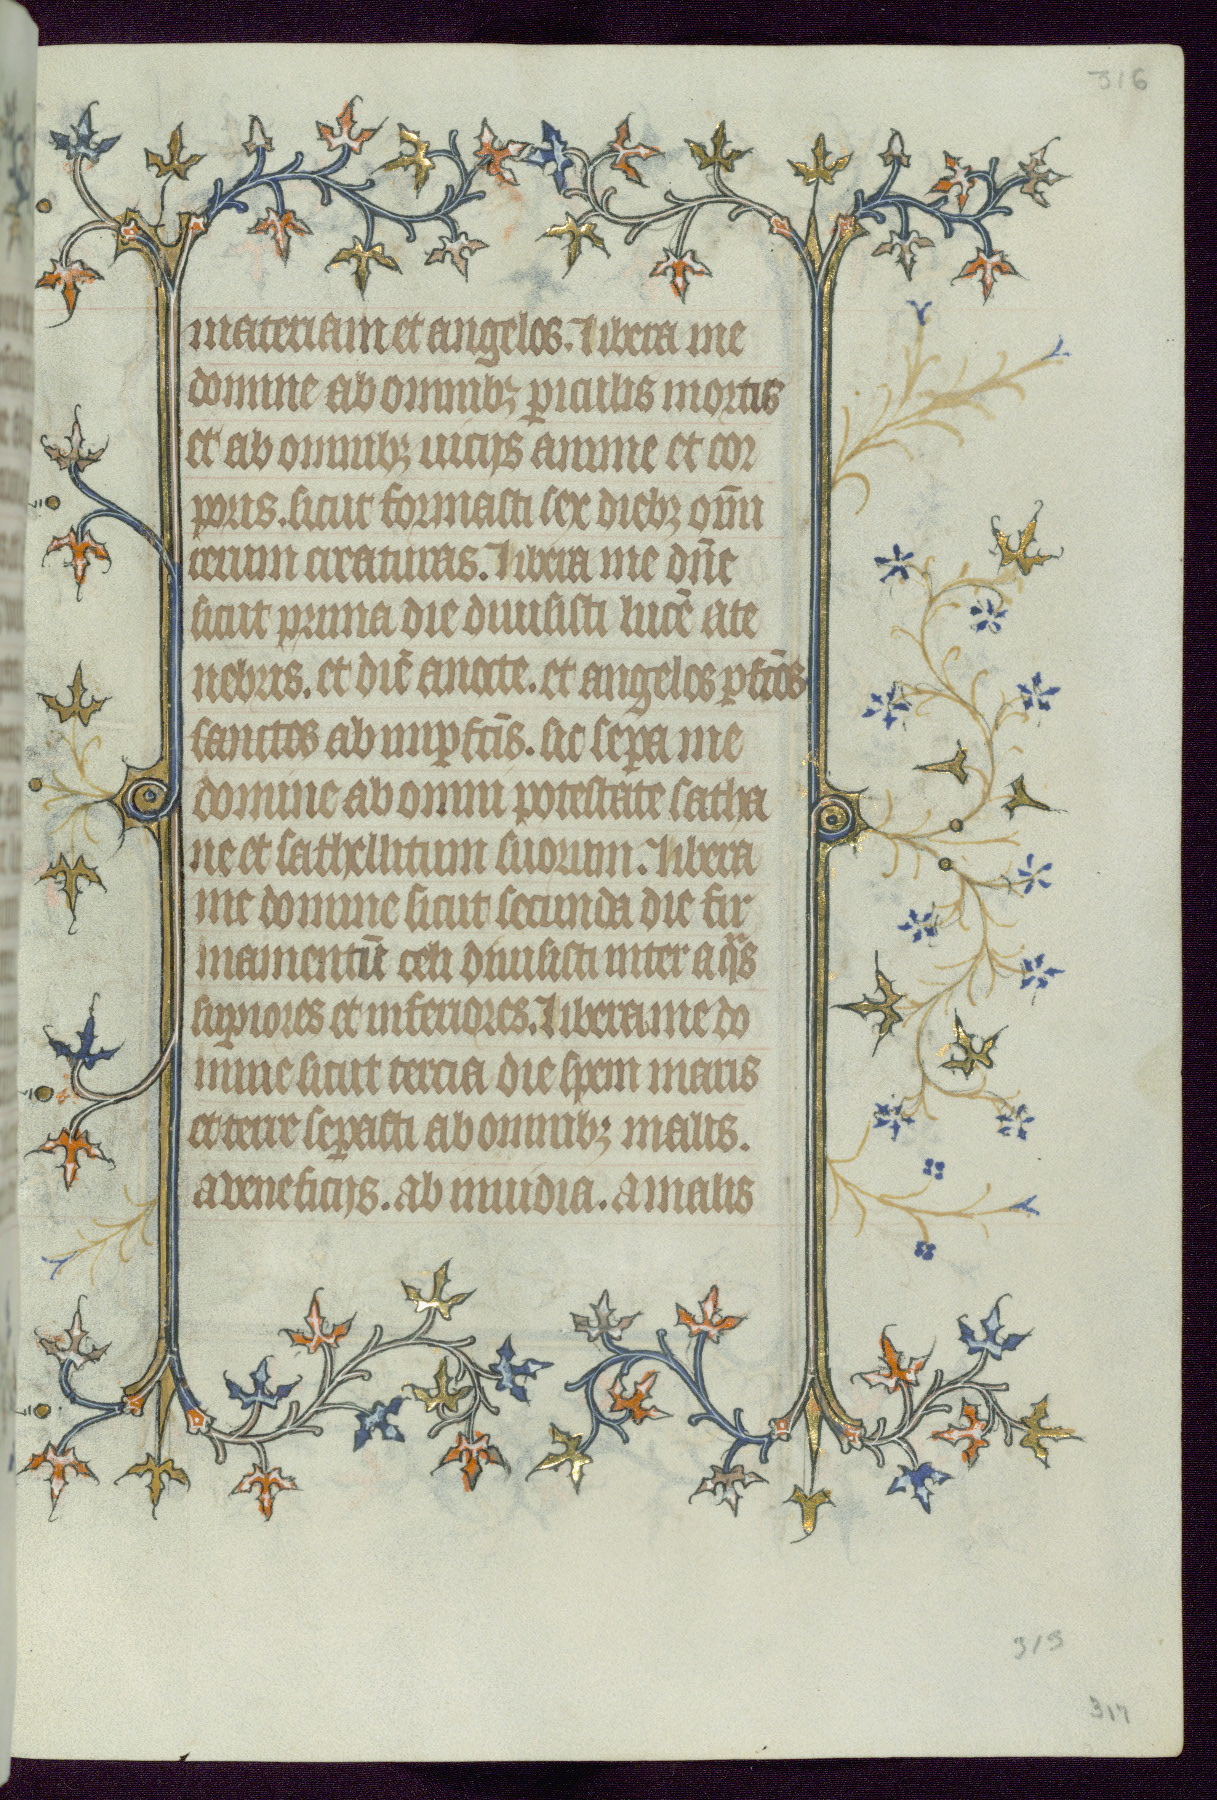 316
materiam et angelos. Libera me
domine ab omnibꝫ ꝑiculis mortis
et ab omnibꝫ uicijs anime et cor
poris. sicut formasti sex diebꝫ om̄i
rerum creaturas. Libera me dn̄e
sicut prima die diuisisti lucē a te
nebris. et diē a nocte. et angelos ꝑfc̄os
sanctos ab inꝑfc̄is. sic seꝑa me
domine ab omni potestate satha
ne et sathellitum suorum. Libera
me domine sicut secunda die fir
mamentū celi diuisisti inter aq̄s
suꝑiores et inferiores. Libera me do
mine sicut tercia die sꝑem maris
et terre seꝑasti ab omnibꝫ malis.
a beneficijs. ab inuidia. a malis
315
317